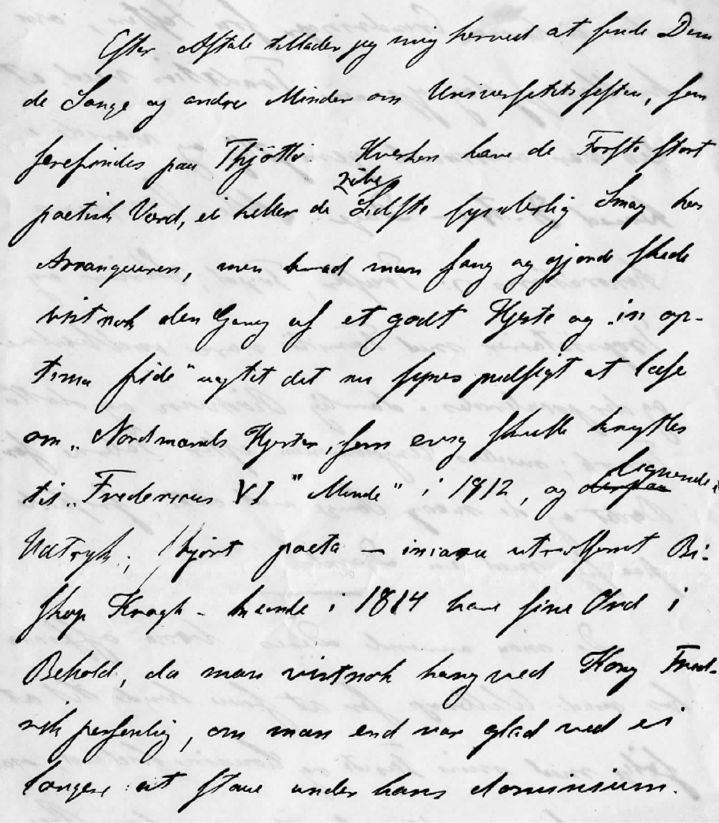 Efter Aftale tillader jeg mig herved at sende Dem
de Sange og andre Minder om Universitetsfesten, som
forefindes paa Thjøttø. Hverken have de Første stort
poetisk Værd, ei heller de Sidste synderlig Smag hos
Arrangeuren, men hvad man sang og gjorde skede
vistnok den Gang af et godt Hjerte og „in op-
tima fide" uagtet det nu synes pudsigt at læse
om „Nordmands Hjerter, som evig skulle knyttes
til „Fredericus VI" Minde" i 1812, og lignende
Udtryk; Hjort poeta – utvivlsomt Bi-
skop Krogh – kunde i 1814 have sine Ord i
Behold, da man vistnok hang ved Kong Fred-
rik personlig, om man end var glad ved ei
længere at staae under hans dominium.